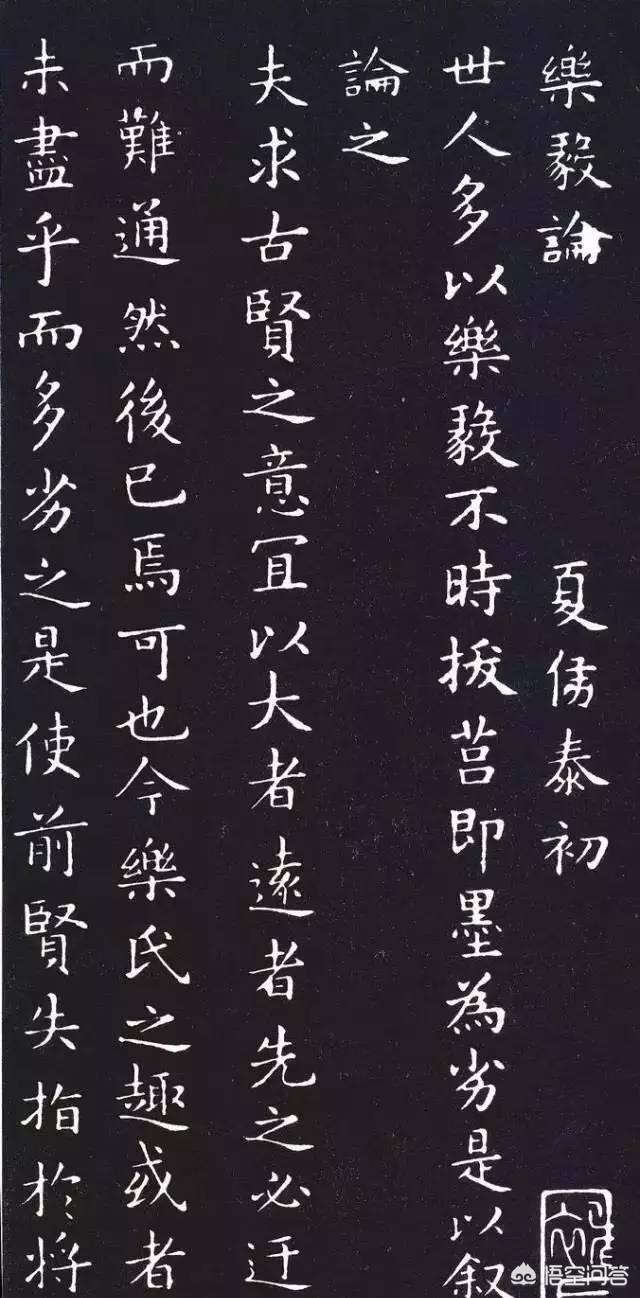 樂毅論 夏侯泰初
世人多以樂毅不時拔莒即墨為劣是以叙
論之
夫求古賢之意宜以大者遠者先之必迂
而難通然後已焉可也今樂氏之趣或者
未盡乎而多劣之是使前賢失指於將
悟空问答